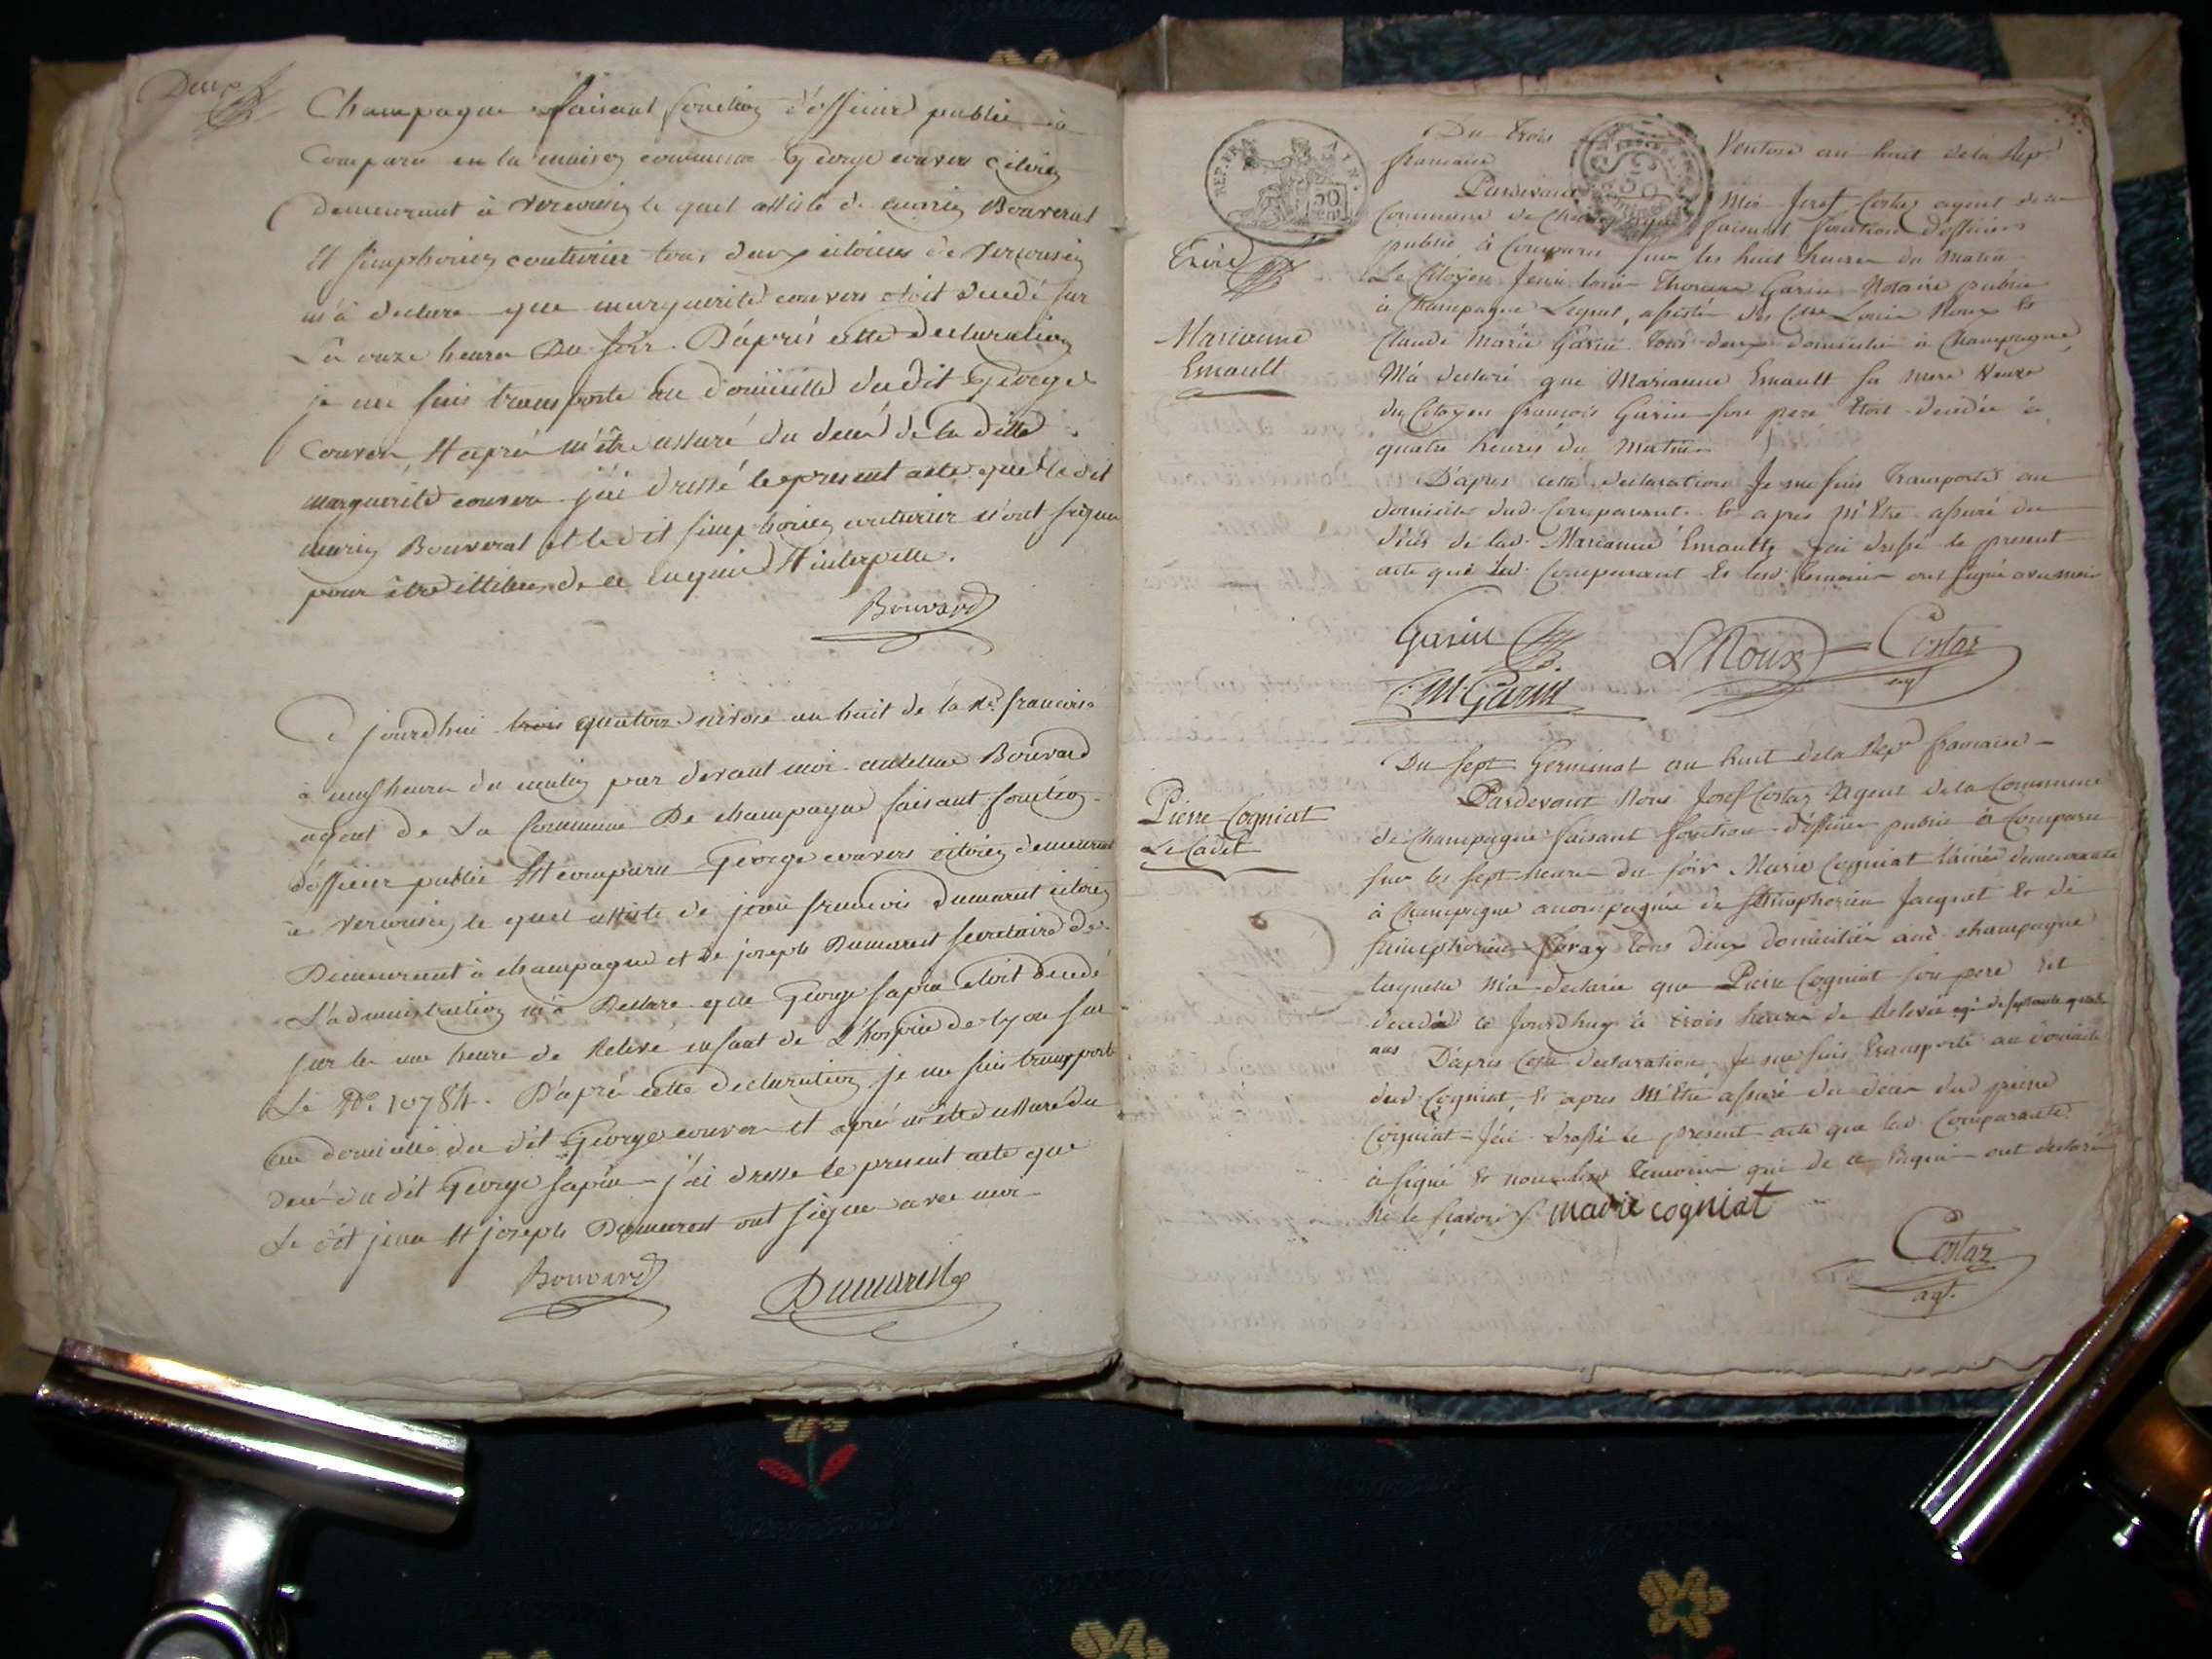 Deux
Champagne faisant fonction d'officier public à
Comparu en la maison commune George couvers citoien
demeurant à vercousin le quel assisté de marin Bouverat
et simphorien couturier tous deux citoiens de vercousin
m'à declaré que marguerite couvers étoit decedé sur
Là onze heures Du soir. D'après cette declaration
je me suis transporté au domicille du dit George
couvers et après m'être assuré du decé de la ditte
marguerite couvers j'ai dressé le present acte que le dit
marin Bouverat et le dit simphorien couturier n'ont signé
pour être illiteré de ce enquis et interpellé.
Bouvard
Ce jourdhui trois quatorze nivose an huit de la Re. francoise
à neuf heures du matin par devant moi antelme Bouvard
agent de La Commune De champagne faisant fonction
d'officier public et comparu George couvers citoien demeurant
à vercousin, le quel assisté de jean francois Dumarest citoien
Demeurant à champagne et de joseph Dumarest secretaire de
L'administration m'à Declaré que George sapin etoit decedé
sur les une heure de Relevé enfant de L'hospice de lyon sur
Le No. 10784. D'après cette declaration je me suis transporté
au domicille du dit George couvers et après m'être assuré du
decé du dit George sapin j'ai dressé le present acte que
Le dit jean et joseph Dumarest ont signé avec moi
Bouvard
Dumarest
REP. FRA.
50 cent.
Du trois Ventose an huit de la Rep.
francaise
Pardevant Moi Josef Costaz agent de la
Commune de Champagne faisant fonction d'officier
public, à Comparu sur les huit heures du Matin
Le Citoyen Jean louis Thomas Garin Notaire public
à Champagne Lequel, assisté des Cens Louis Roux et
Claude Marie Garin tous deux domiciliés à Champagne,
M'à declaré que Marianne Emault sa mere Veuve
du Citoyen françois Garin son pere etoit decedée à
quatre heures du Matin
D'apres cette declaration Je me suis Transporté au
domicile dud. Comparant. et apres M'Etre assuré du
décés de lad. Marianne Emault, j'ai dressé le present
acte que led. Comparant et lesd. temoins ont signé avec moi
Marianne
Emault
Garin
L Roux
Costaz
agt
C. M. Garin
Du sept Germinal an huit de la Repe francaise
Pierre Cogniat
Le Cadet
Pardevant Nous Josef Costaz Agent de la Commune
de Champagne faisant fonction d'officier public à Comparu
sur les sept heures du soir Marie Cogniat l'ainée demeurante
à Champagne accompagnée de Simphorien Jacquet et de
simphorien tous deux domiciliés aud. champagne
laquelle M'a declarée que Pierre Cogniat son pere est
decedé ce Jourdhuy à trois heures de Relevée agé de septante quatre
ans D'apres Cette declaration Je me suis transporté au domicile
dud. Cogniat, et apres M'Etre assuré du deces dud. pierre
Cogniat J'ai dressé le present acte que lad. Comparante
à signé et non lesd. temoins qui de ce Enquis ont declaré
Ne le sçavoir marie cogniat
Costaz
agt.